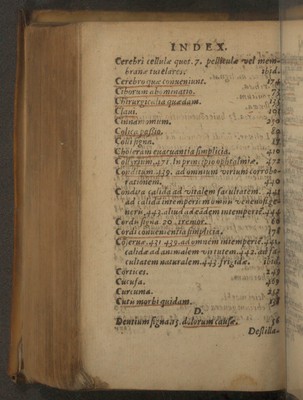 INDEX.
Cerebri cellulæ quot. 7. pellitulæ vel mem-
branæ tutelares. ibid.
Cerebro quæ conveniunt. 174
Ciborum abominatio. 75
Chirurgicalia quædam.
Clavi. 101
Cinnamomum. 250
Colica passio. 80
Colli signa. 17
Choleram evacuantia simplicia. 410
Collyrium. 471. In principio ophtalmiæ. 472
Conditum 439. ad omnium virium corrobo-
rationem. 440
Condita calida ad vitalem facultatem. 441
ad calida intemperiem
442. aliud ad eādem intemperiē.
Cordis signa 20. tremor.
Cordi convenientia simplicia. 178
439. ad omnem intemperiē. 441
calidæ ad animalem virtutem 442. ad fa-
cultatem naturalem. 443 frigidæ. ibid.
Cortices. 249
Cucufa. 469
Curcuma.
Cutis morbi quidam. 158
D.
Dentium signa 15. dolorum causæ. 56
Destilla-